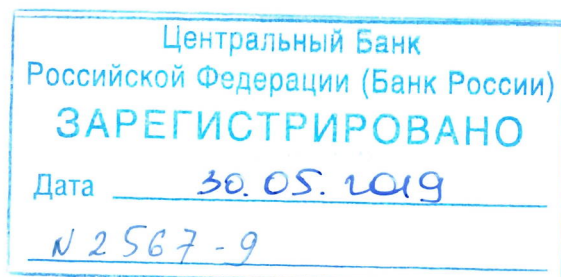 Центральный Банк
Российской Федерации (Банк России)
ЗАРЕГИСТРИРОВАНО
Дата 30.05.2019
N 2567-9